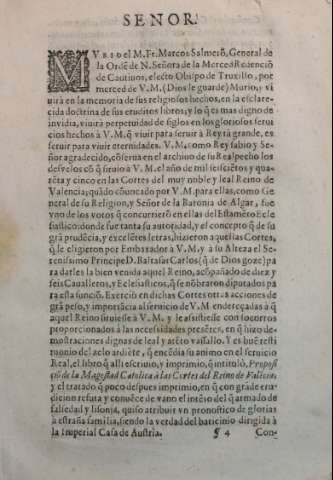 SEÑOR.
MVrio el M. Fr. Marcos Salmerõ, General de
la Ordẽ de N. Señora de la Merced Redenciõ
de Cautiuos, electo Obispo de Truxillo, por
merced de V.M. (Dios le guarde) Murio, y vi
uirà en la memoria de sus religiosos hechos, en la esclare
cida doctrina de sus eruditos libros; y lo q̃ es mas digno de
inuidia, viuirà perpetuidad de siglos en los gloriosos serui
cios hechos à V.M. q̃ viuir para seruir à Rey tã grande, es
seruir para viuir eternidades. V.M. como Rey sabio y Se
ñor agradecido, cõserua en el archiuo de su Real pecho los
desvelos cõ q̃ siruiò à V.M. el año de mil seiscietos y quarẽ
ta y cinco en las Cortes del muy noble y leal Reino de
Valencia; quãdo cõuocado por V.M. para ellas, como Ge
neral de su Religion, y Señor de la Baronia de Algar, fue
vno de los votos q̃ concurrierõ en ellas del Estamẽto Ecle
siastico: donde fue tanta su autoridad, y el concepto q̃ de su
grã prudẽcia, y excelẽtes letras, hizieron aquellas Cortes,
q̃ le eligieron por Embaxador à V.M. y a su Alteza el Se
renissimo Principe D. Baltasar Carlos (q̃ de Dios goze) pa
ra darles la bien venida aquel Reino, acõpañado de diez y
seis Caualleros, y Eclesiasticos, q̃ se nõbraron diputados pa
ra esta funciõ. Exerciò en dichas Cortes otras acciones de
grã peso, y importãcia al seruicio de V.M. endereçadas à q̃
aquel Reino siruiesse à V.M. y le assistiesse con socorros
proporcionados à las necessidades presẽtes, en q̃ hizo de-
mostraciones dignas de leal y atẽto vassallo. Y es buẽ testi
monio del zelo ardiẽte, q̃ encẽdia su animo en el seruicio
Real, el libro q̃ alli escriuio, y imprimio, q̃ intitulò, Proposi
ciõ de la Magestad Catolica à las Cortes del Reino de Valẽcia,
y el tratado q̃ poco despues imprimio, en q̃ con grãde eru-
dicion refuta y conuẽce de vano el intẽto del q̃ armado de
falsedad y lisonja, quiso atribuir vn pronostico de glorias
à estraña familia, siendo la verdad del baticinio dirigida à
la Imperial Casa de Austria. ¶ 4 Con-